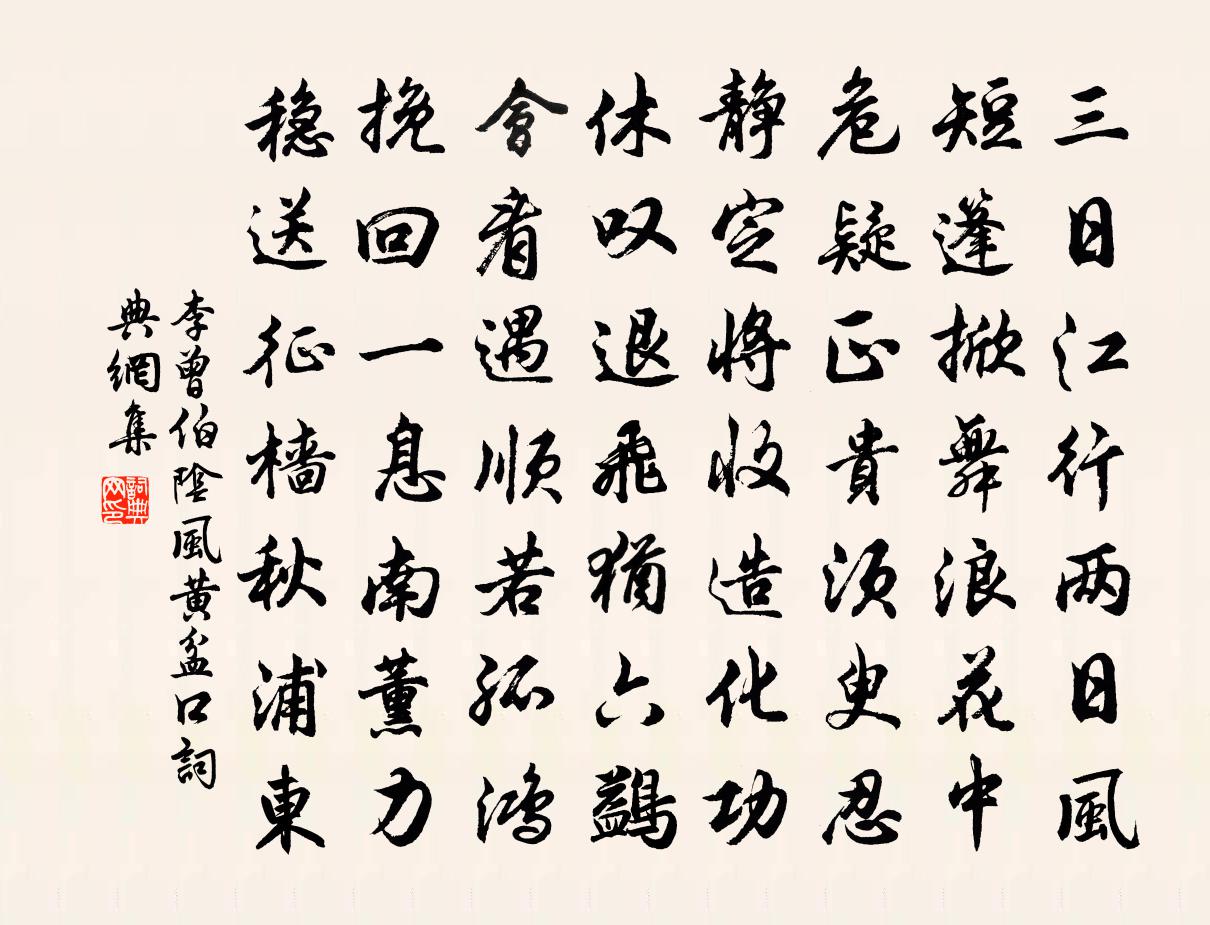 三日江行两日風
短蓬掀舞浪花中
危疑正貴須臾忍
静定將收造化功
休叹退飛猶六鷁
會看遇順若孤鴻
挽回一息南薰力
穩送征檣秋浦東
李曾伯陰風黄盆口詞
典網集
詞典网印